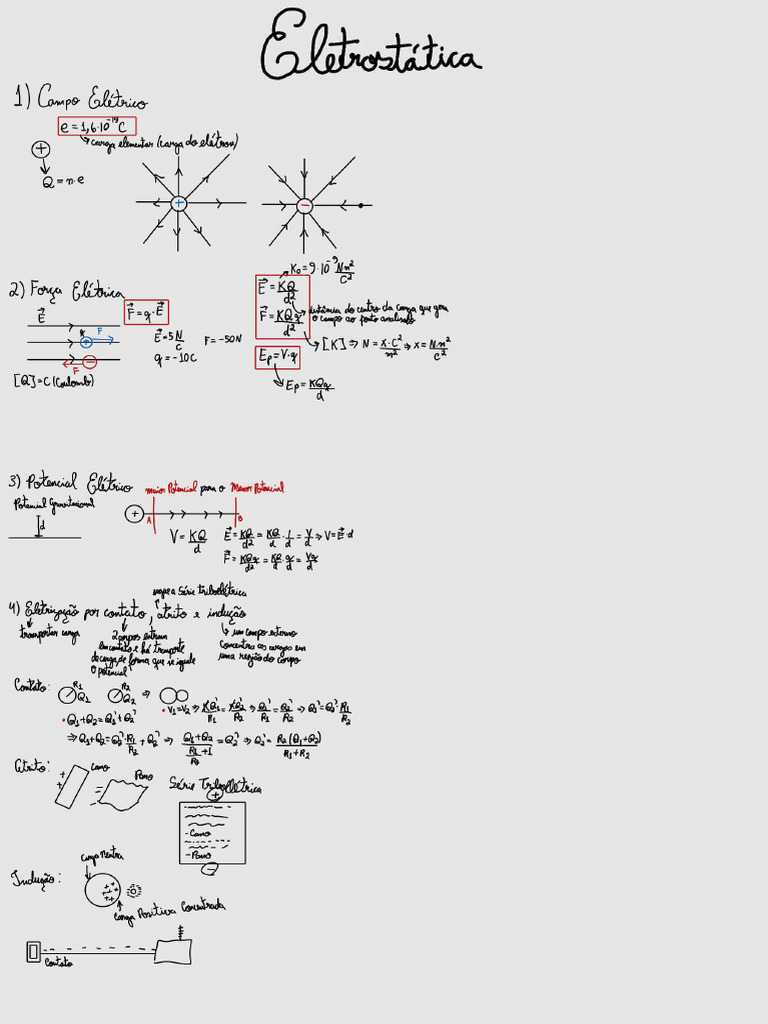 Eletrostática
1) Campo Elétrico
e = 1,6·10⁻¹⁹ C
carga elementar (carga do elétron)
+
Q = n·e
+
−
2) Força Elétrica
F⃗ = q·E⃗
E⃗
F
+
−
F
[Q] = C (Coulomb)
E⃗ = 5 N/C
F = −50N
q = −10C
K₀ = 9·10⁻⁹ Nm²/C²
E⃗ = KQ/d²
F⃗ = KQq/d²
distância do centro da carga que gera
o campo ao ponto analisado
[K] ⇒ N = x·C²/m² ⇒ x = N·m²/C²
Ep = V·q
Ep = KQq/d
3) Potencial Elétrico
Potencial Gravitacional
d
maior Potencial para o Menor Potencial
+
A
B
V = KQ/d
E⃗ = KQ/d² = KQ/d · 1/d = V/d ⇒ V = E⃗·d
F⃗ = KQq/d² = KQ/d · q/d = Vq/d
4) Eletrização por contato, atrito e indução
segue a Série triboelétrica
transportar carga
2 corpos entram
em contato e há transporte
de carga, de forma que se iguale
o potencial
um campo externo
concentra as cargas em
uma região do corpo
Contato:
R1
Q1
R2
Q2
⇒
• Q1+Q2 = Q1'+Q2'
• V1 = V2 ⇒ KQ1'/R1 = KQ2'/R2 ⇒ Q1'/R1 = Q2'/R2 ⇒ Q1' = Q2'·R1/R2
⇒ Q1+Q2 = Q2'·R1/R2 + Q2' ⇒ (Q1+Q2)/(R1/R2 + 1) = Q2' ⇒ Q2' = R2(Q1+Q2)/(R1+R2)
Atrito:
Cano
Pano
+
+
Série Triboelétrica
+
- Cano
- Pano
−
Indução:
carga Neutra
Carga Positiva Concentrada
Contato